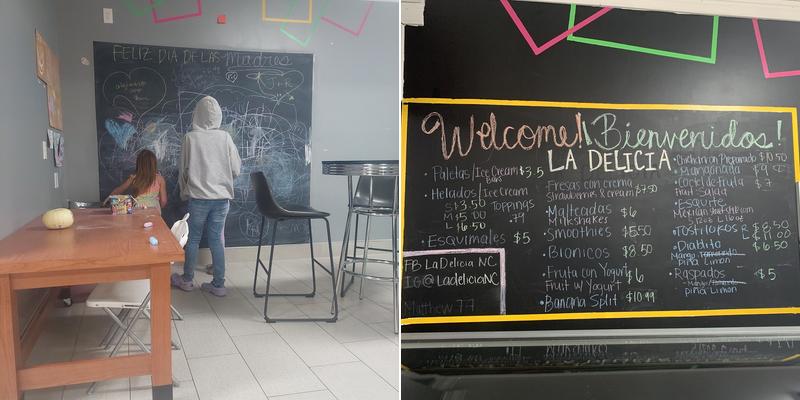 FELIZ DIA DE LAS Madres
Welcome! Bienvenidos!
LA DELICIA
• Paletas/Ice Cream Bars $3.5
• Helados/Ice Cream
S $3.50 Toppings
M 5.00 .79
L $6.50
• Esquimales $5
FB LaDelicia NC
IG@LadeliciaNC
Matthew 7:7
Fresas con crema
Strawberries & cream $7.50
• Malteadas $6
Milkshakes
Smoothies $5.50
• Bionicos $8.50
• Fruta con Yogurt $6
Fruit w/ Yogurt
• Banana Split $10.99
• Chicharron Preparado $10.50
• Mangonada
• Coctel de fruta $7
Fruit Salad
• Esquite
• Tostilokos R $8.50
• Diablito $6.50
Piña Limon
• Raspados $5
Piña Limon